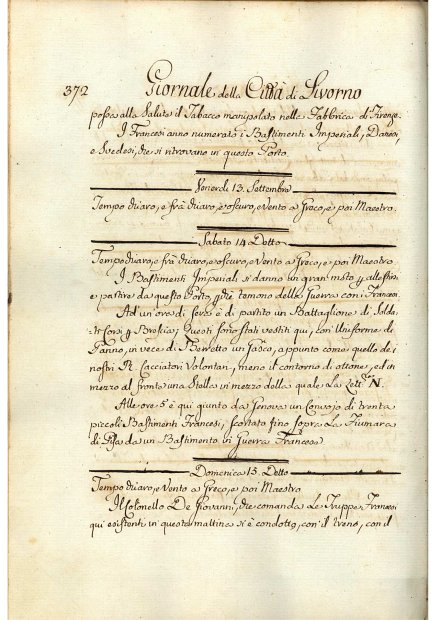 372 Giornale della Città di Livorno
possa alla Salute il Tabacco manipolato nella Fabbrica di Firenze.
I Francesi anno numerato i Bastimenti Imperiali, Danesi,
e Svedesi, che si ritrovano in questo Porto.
Venerdi 13. Settembre
Tempo chiaro, e frà chiaro, e oscuro, e Vento a Greco, e poi Maestro.
Sabato 14 Detto
Tempo chiaro, e frà chiaro, e oscuro, e Vento a Greco, e poi Maestro
I Bastimenti Imperiali si danno un gran moto p allestirsi
e partire da questo Porto, p che temono della Guerra con i Francesi.
Ad un ora di sera è di partito un Battaglione di Solda-
ti Corsi p Brescia; Questi sono stati vestiti qui, con Uniforme di
Panno, in vece di Berretto un Casco, appunto come quello de i
nostri R. Cacciatori Volontari, meno il contorno di ottone, ed in
mezzo al fronte una Stella in mezzo della quale La Lett.ra N.
Alle ore 5 è qui giunto da Genova un Convojo di trenta
piccoli Bastimenti Francesi, scortato fino sopra La Fiumara
di Pisa da un Bastimento in Guerra Francese
Domenica 15. Detto
Tempo chiaro, e Vento a Greco, e poi Maestro
Il Colonello De Giovanni, che comanda Le Truppe Francesi
qui esistenti in questa mattina si è condotto, con il treno, con il